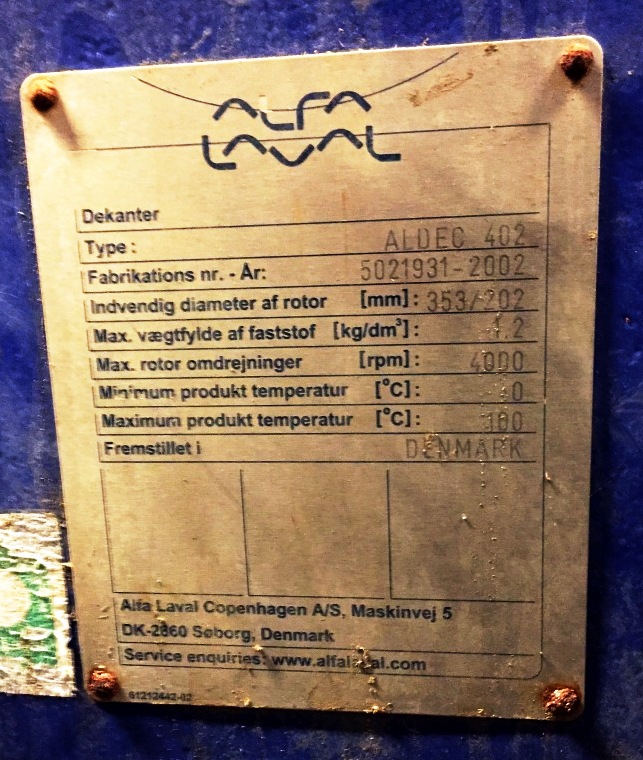 ALFA
LAVAL
Dekanter
Type : ALDEC 402
Fabrikations nr. - År: 5021931-2002
Indvendig diameter af rotor [mm] : 353/202
Max. vægtfylde af faststof [kg/dm³] : 1.2
Max. rotor omdrejninger [rpm] : 4000
Minimum produkt temperatur [°C] :
Maximum produkt temperatur [°C] : 100
Fremstillet i DENMARK
Alfa Laval Copenhagen A/S, Maskinvej 5
DK-2860 Søborg, Denmark
Service enquiries: www.alfalaval.com
61212442-02